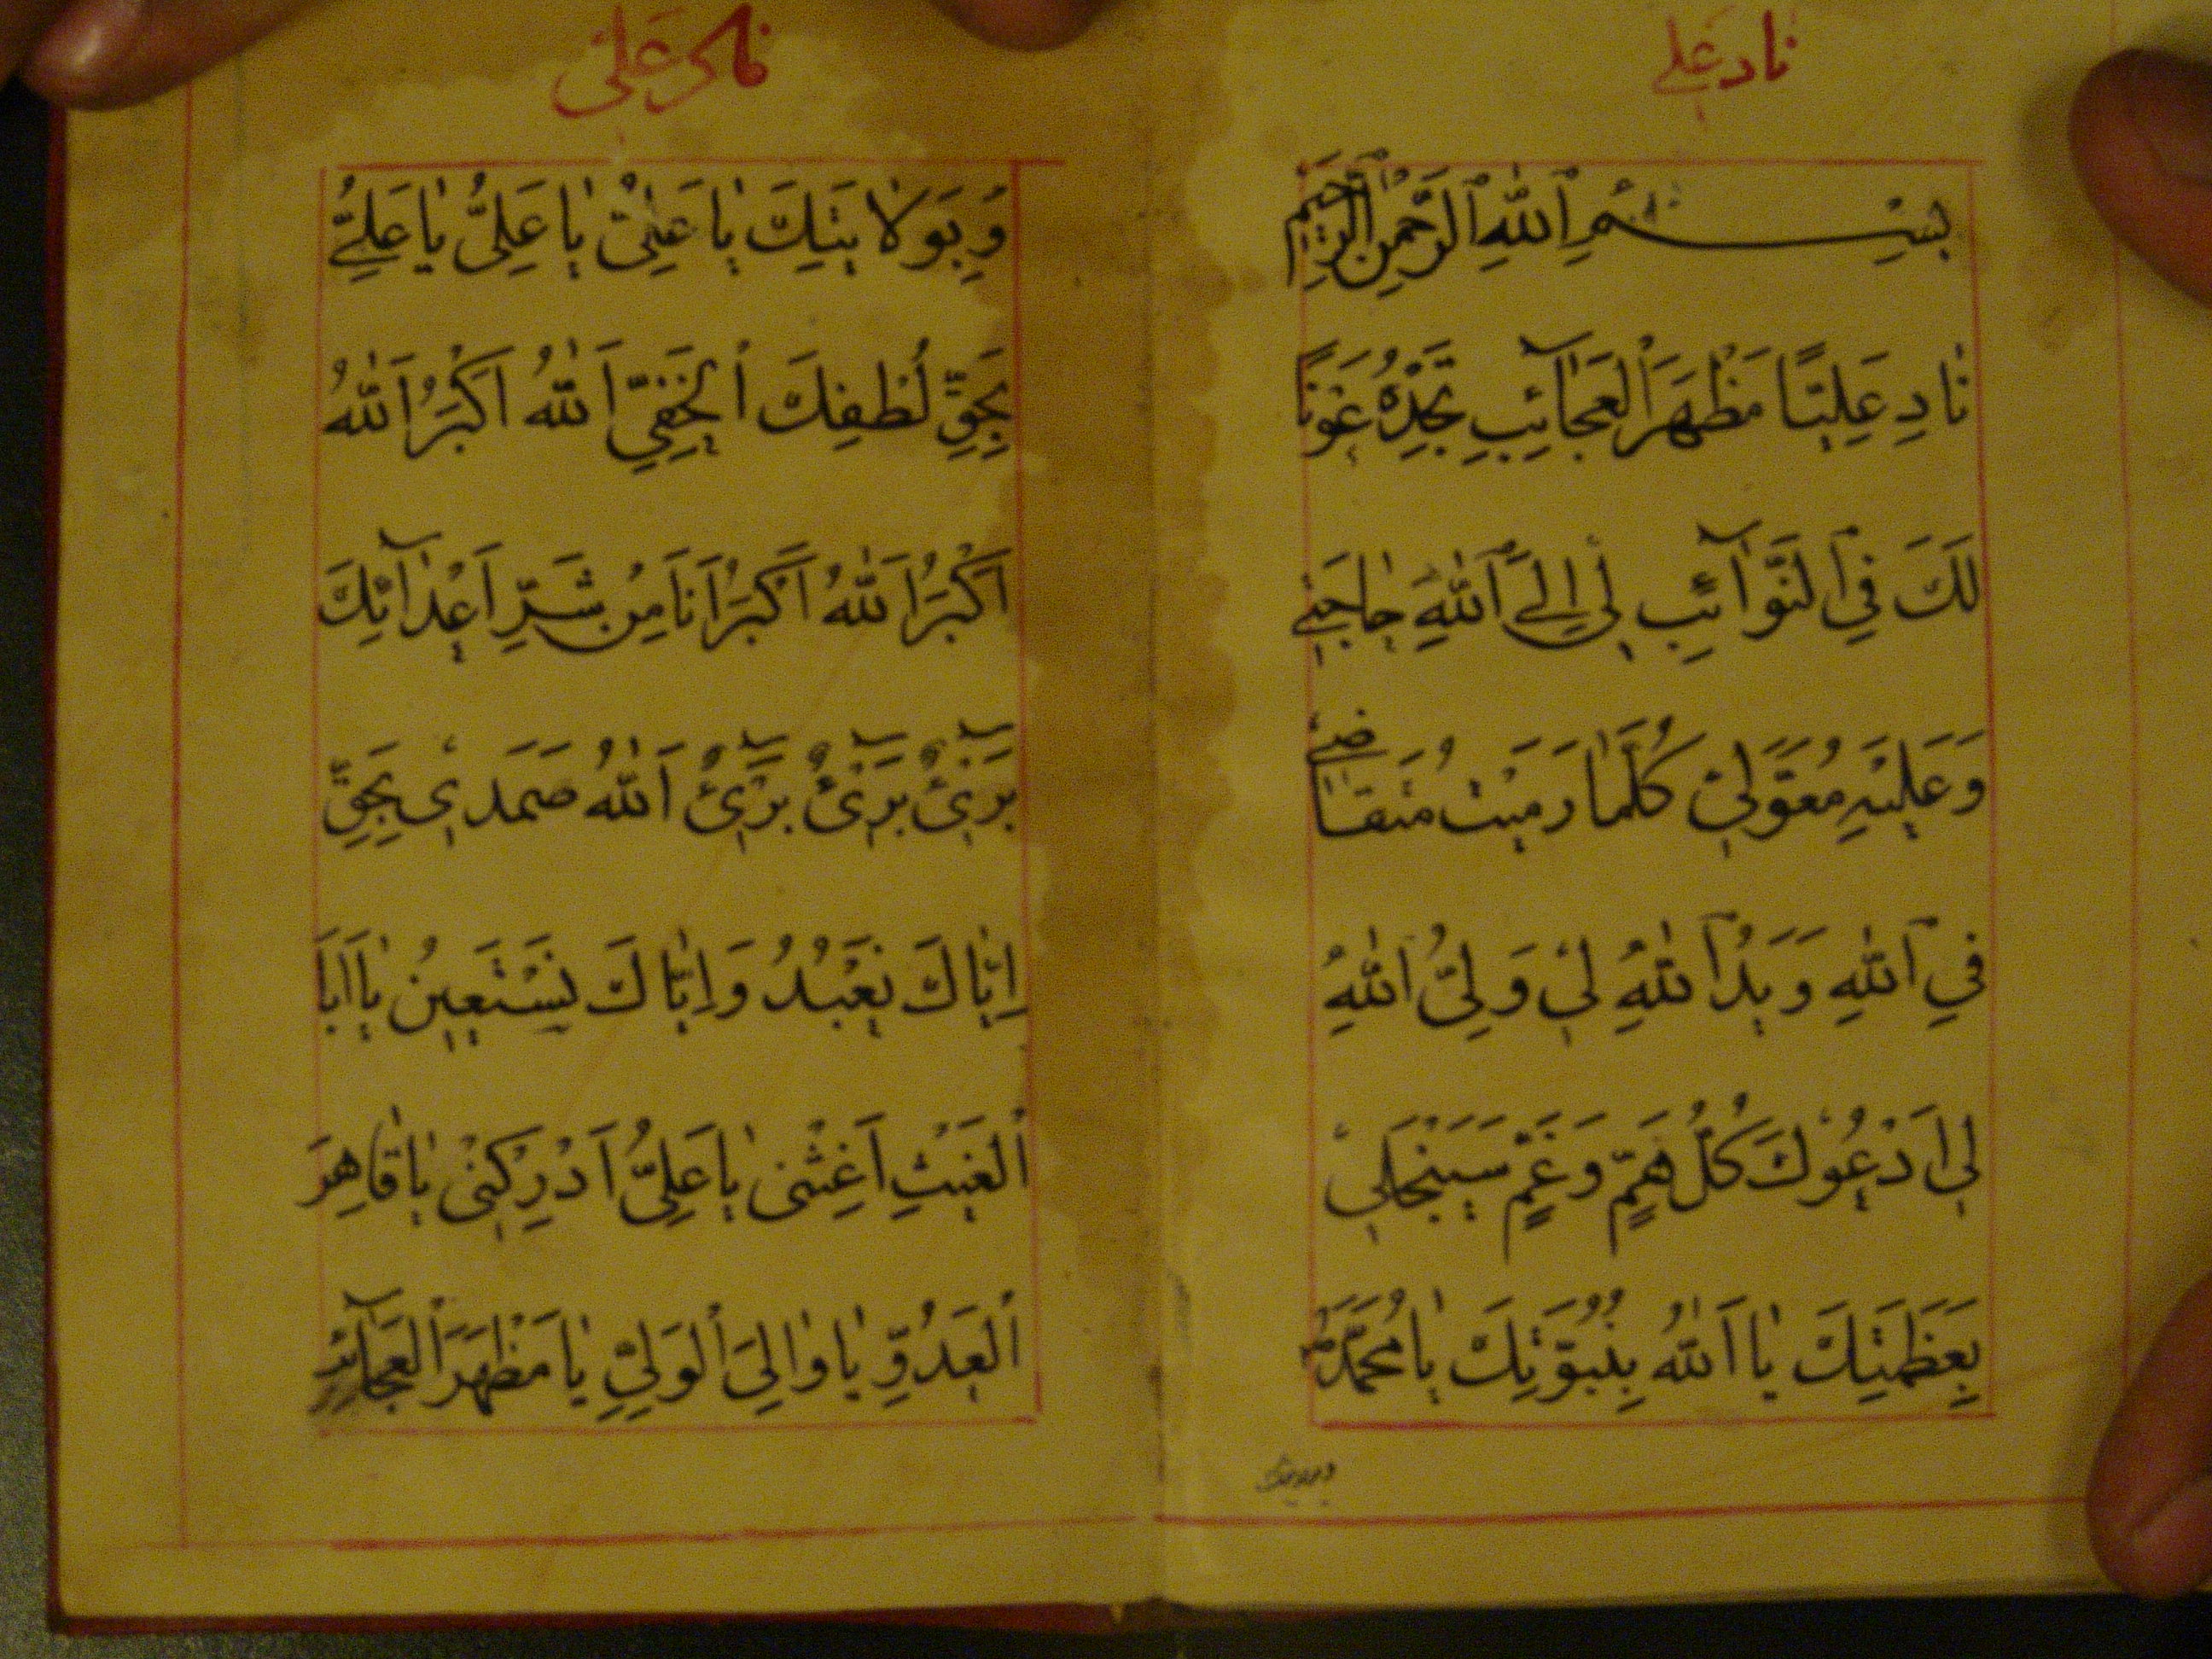 ناد علي
بِسْمِ ٱللّٰهِ ٱلرَّحْمٰنِ ٱلرَّحِيْمِ
نٰادِ عَلِيًّا مَظْهَرَ ٱلْعَجَآئِبِ تَجِدْهُ عَوْنًا
لَكَ فِي ٱلنَّوَآئِبِ لِي إِلَى ٱللّٰهِ حٰاجَتِي
وَعَلَيْهِ مُعَوَّلِي كُلَّمٰا رَمَيْتُ مُنَقٰاضِي
فِي ٱللّٰهِ وَيَدُ ٱللّٰهِ لِي وَلِيُّ ٱللّٰهِ
لِي اَدْعُوكَ كُلُّ هَمٍّ وَغَمٍّ سَيَنْجَلِي
بِعَظَمَتِكَ يٰا اَللّٰهُ بِنُبُوَّتِكَ يٰا مُحَمَّدُ
ناد علي
وَبِوَلٰايَتِكَ يٰا عَلِيُّ يٰا عَلِيُّ يٰا عَلِيُّ
بِحَقِّ لُطْفِكَ ٱلْخَفِيِّ اَللّٰهُ اَكْبَرُ اَللّٰهُ
اَكْبَرُ اَللّٰهُ اَكْبَرُ اَنَا مِنْ شَرِّ اَعْدٰآئِكَ
بَرِيْٓئٌ بَرِيْٓئٌ بَرِيْٓئٌ اَللّٰهُ صَمَدِي بِحَقِّ
اِيّٰاكَ نَعْبُدُ وَاِيّٰاكَ نَسْتَعِينُ يٰا اَبَا
ٱلْغَيْثِ اَغِثْنِي يٰا عَلِيُّ اَدْرِكْنِي يٰا قٰاهِرَ
ٱلْعَدُوِّ يٰا وٰالِيَ ٱلْوَلِيِّ يٰا مَظْهَرَ ٱلْعَجَآئِبِ